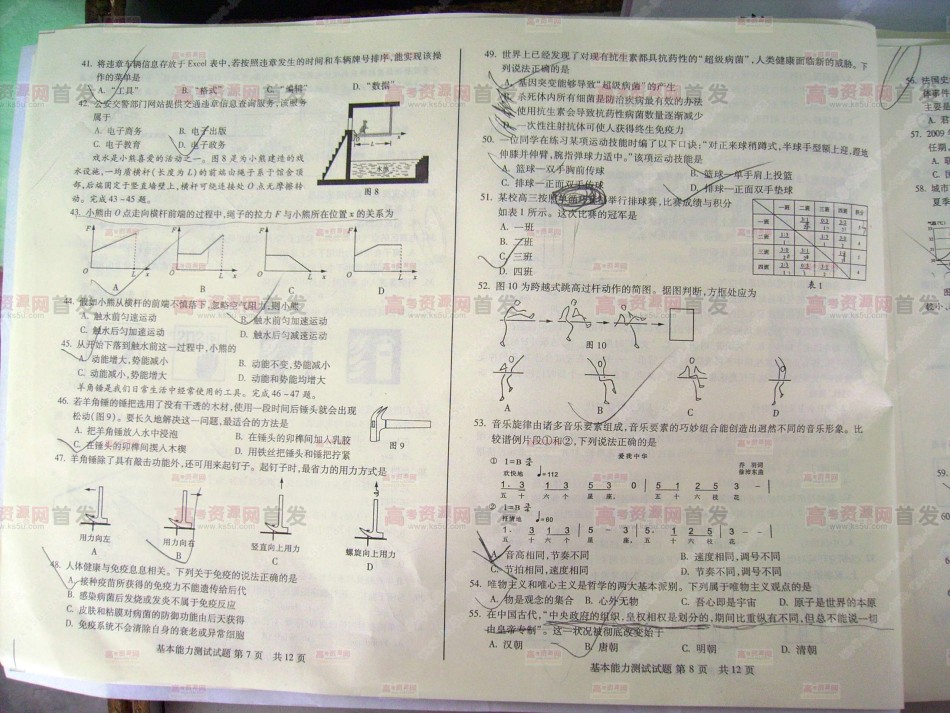 41. 将违章车辆信息存放于Excel表中,若按照违章发生的时间和车牌号排序,能实现该操
作的菜单是
A. “工具” B. “格式” C. “编辑” D. “数据”
42. 公安交管部门网站提供交通违章信息查询服务,该服务
属于
A. 电子商务 B. 电子出版
C. 电子教育 D. 电子政务
戏水是小熊喜爱的活动之一。图8是为小熊建造的戏
水设施,一均质横杆(长度为L)的前端由绳子系于馆舍顶
部,后端固定于竖直墙壁上,横杆可绕连接处O点无摩擦转
动。完成43~45题。
图8
43. 小熊由O点走向横杆前端的过程中,绳子的拉力F与小熊所在位置x的关系为
A B C D
44. 假如小熊从横杆的前端不慎落下,忽略空气阻力,则小熊
A. 触水前匀速运动 B. 触水前匀加速运动
C. 触水后匀加速运动 D. 触水后匀减速运动
45. 从开始下落到触水前这一过程中,小熊的
A. 动能增大,势能减小 B. 动能不变,势能减小
C. 动能减小,势能增大 D. 动能和势能均增大
羊角锤是我们日常生活中经常使用的工具。完成46~47题。
46. 若羊角锤的锤把选用了没有干透的木材,使用一段时间后锤头就会出现
松动(图9)。要长久地解决这一问题,最适合的方法是
A. 把羊角锤放入水中浸泡 B. 在锤头的卯榫间加入乳胶
C. 在锤头的卯榫间揳入木楔 D. 用铁丝把锤头和锤把拧紧
图9
47. 羊角锤除了具有敲击功能外,还可用来起钉子。起钉子时,最省力的用力方式是
用力向左 用力向右 竖直向上用力 螺旋向上用力
A B C D
48. 人体健康与免疫息息相关。下列关于免疫的说法正确的是
A. 接种疫苗所获得的免疫力不能遗传给后代
B. 感染病菌后发烧或发炎不属于免疫反应
C. 皮肤和粘膜对病菌的防御功能由后天获得
D. 免疫系统不会清除自身的衰老或异常细胞
基本能力测试试题 第7页 共12页
49. 世界上已经发现了对现有抗生素都具抗药性的“超级病菌”,人类健康面临新的威胁。下
列说法正确的是
A. 基因突变能够导致“超级病菌”的产生
B. 杀死体内所有细菌是防治疾病最有效的办法
C. 使用抗生素会导致抗药性病菌数量逐渐减少
D. 一次性注射抗体可使人获得终生免疫力
50. 一位同学在练习某项运动技能时编了以下口诀:“对正来球稍蹲式,半球手型额上迎,蹬地
伸膝并伸臂,腕指弹球力适中。”该项运动技能是
A. 篮球—双手胸前传球 B. 篮球—单手肩上投篮
C. 排球—正面双手传球 D. 排球—正面双手垫球
51. 某校高三按照单循环赛制举行排球赛,比赛成绩与积分
如表1所示。这次比赛的冠军是
A. 一班
B. 二班
C. 三班
D. 四班
一班 二班 三班 四班 积分
一班
二班
三班
四班
表1
52. 图10为跨越式跳高过杆动作的简图。据图判断,方框处应为
图10
A B C D
53. 音乐旋律由诸多音乐要素组成,音乐要素的巧妙组合能创造出迥然不同的音乐形象。比
较谱例片段①和②,下列说法正确的是
爱我中华
① 1=B
欢快地 ♩=112
乔 羽词
徐沛东曲
1. 3 1 3 5 3 0 | 5 1 2 5 3 - |
五 十 六 个 星 座, 五 十 六 枝 花
② 1=B
抒情地 ♩=60
1. 3 1 3 | 5 - 3 | 5. 1 2 5 | 3 - - |
五 十 六 个 星 座, 五 十 六 枝 花
A. 音高相同,节奏不同 B. 速度相同,调号不同
C. 节拍相同,速度相同 D. 节奏不同,调号不同
54. 唯物主义和唯心主义是哲学的两大基本派别。下列属于唯物主义观点的是
A. 物是观念的集合 B. 心外无物 C. 吾心即是宇宙 D. 原子是世界的本原
55. 在中国古代,“中央政府的组织,皇权相权是划分的,期间比重纵有不同,但总不能说一切
由皇帝专制”。这一状况被彻底改变始于
A. 汉朝 B. 唐朝 C. 明朝 D. 清朝
基本能力测试试题 第8页 共12页
56. 法国史
57. 2009
58. 城市
59.
60.
61.
高考资源网首发
www.ks5u.com